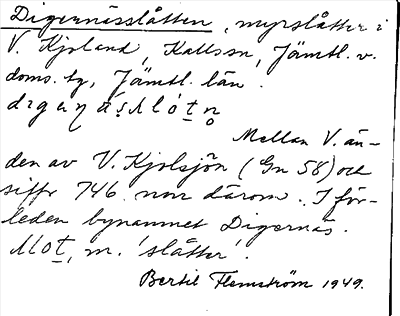 Digernässlåtten, myrslåtter i
V. Kjoland, Kallssn, Jämtl. v.
doms. tg, Jämtl. län.
Mellan V. än-
den av V. Kjolsjön (Gn 58) och
siffr 746 norr därom. I för-
leden bynamnet Digernäs.
m. 'slåtter'.
Bertil Flemström 1949.